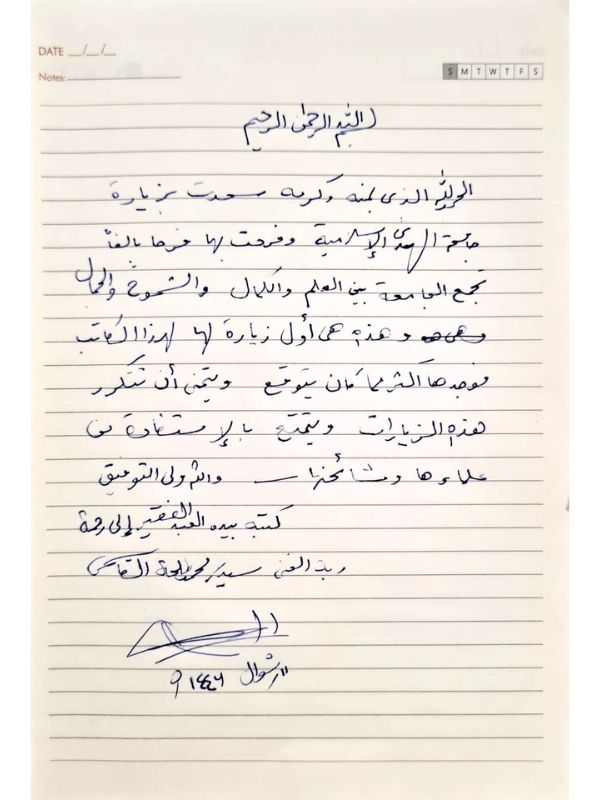 DATE __/__/__
Notes:
S M T W T F S
بسم الله الرحمن الرحيم
الحمد لله الذي بمنه وكرمه سعدت بزيارة
جامعة الهدى الإسلامية وفرحت بها فرحا بالغاً
تجمع الجامعة بين العلم والكمال والشموخ والجمال
وهذه هي أول زيارة لها لهذا الكاتب
فوجدها أكثر مما كان يتوقع ويتمنى أن تتكرر
هذه الزيارات ويتمتع بالإستفادة من
علماءها ومشائخها والله ولي التوفيق
كتبه بيده العبد الفقير إلى رحمة
ربه الغني سيد محمد طلحة القاسمي
شوال ١٤٤٦